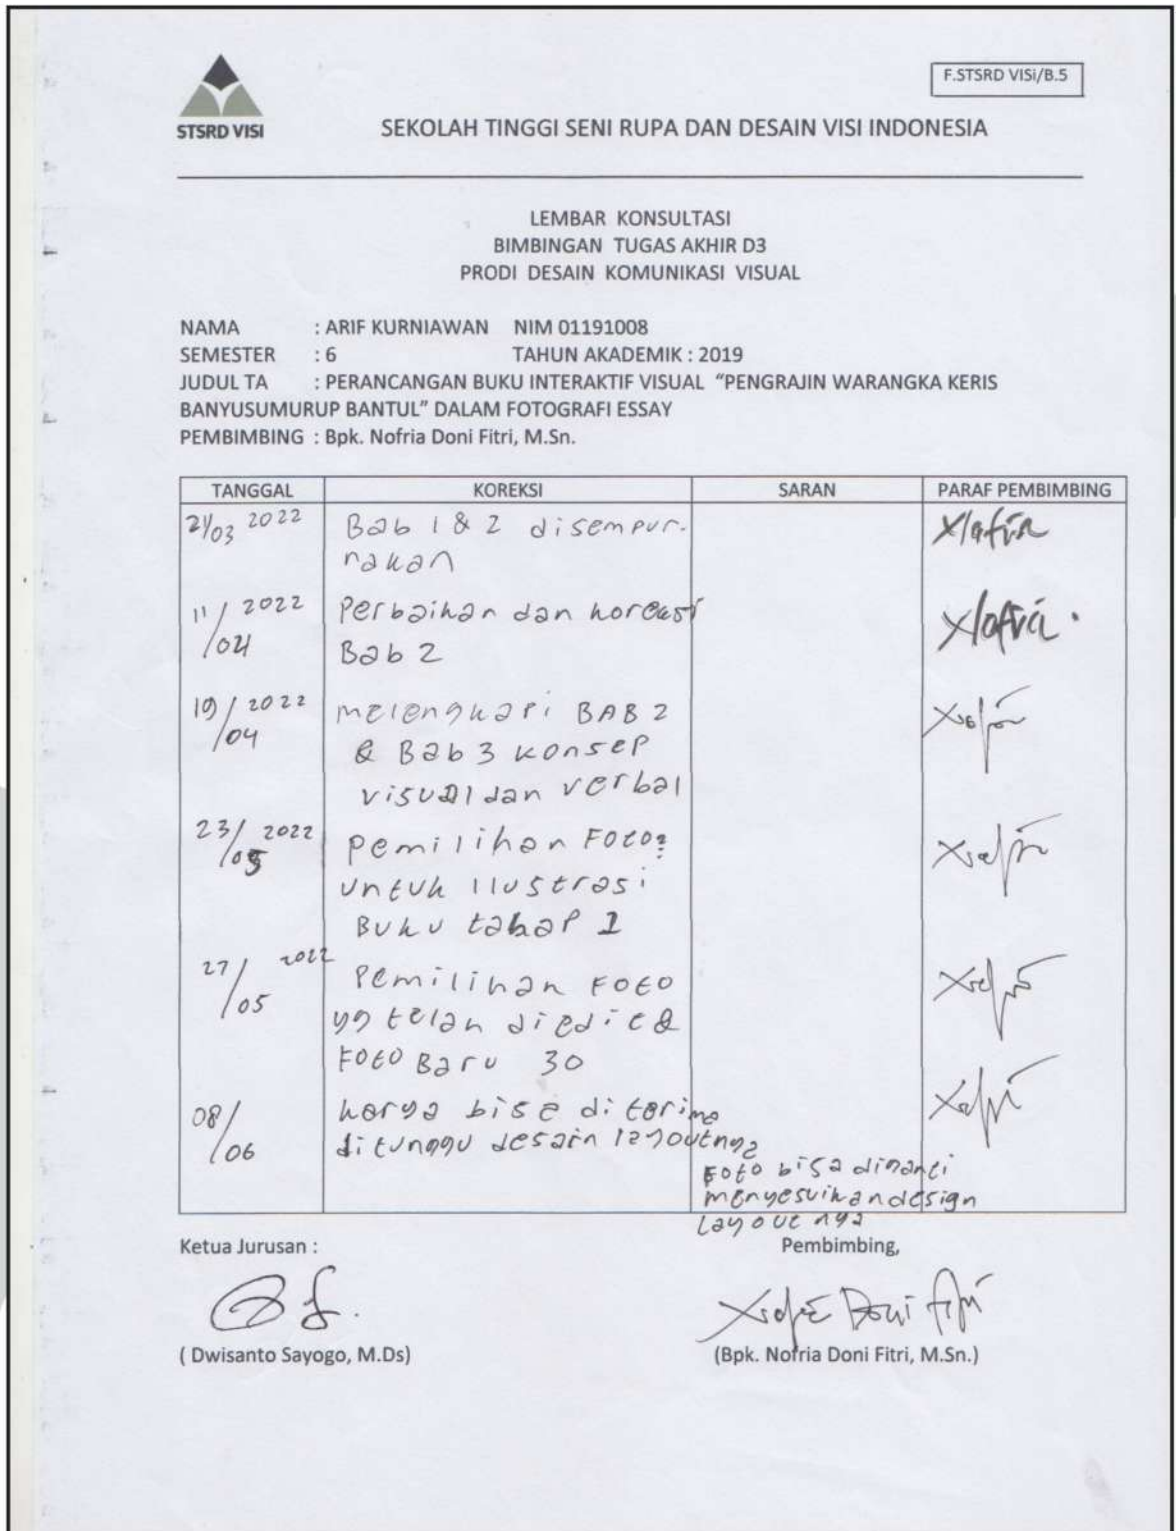 STSRD VISI
F.STSRD VISi/B.5
SEKOLAH TINGGI SENI RUPA DAN DESAIN VISI INDONESIA
LEMBAR KONSULTASI
BIMBINGAN TUGAS AKHIR D3
PRODI DESAIN KOMUNIKASI VISUAL
NAMA : ARIF KURNIAWAN NIM 01191008
SEMESTER : 6 TAHUN AKADEMIK : 2019
JUDUL TA : PERANCANGAN BUKU INTERAKTIF VISUAL "PENGRAJIN WARANGKA KERIS
BANYUSUMURUP BANTUL" DALAM FOTOGRAFI ESSAY
PEMBIMBING : Bpk. Nofria Doni Fitri, M.Sn.
TANGGAL KOREKSI SARAN PARAF PEMBIMBING
21/03 2022 Bab 1 & 2 disempur-
nakan
11/04 2022 Perbaikan dan koreksi
Bab 2
19/04 2022 melengkapi BAB 2
& Bab 3 konsep
visual dan verbal
23/05 2022 Pemilihan Foto2
untuk ilustrasi
Buku tahap 1
27/05 2022 Pemilihan Foto
yg telah diedit &
Foto Baru 30
08/06 karya bisa diterima
ditunggu desain layoutnya
Foto bisa diganti
menyesuikan design
layout nya
Ketua Jurusan : Pembimbing,
( Dwisanto Sayogo, M.Ds) (Bpk. Nofria Doni Fitri, M.Sn.)